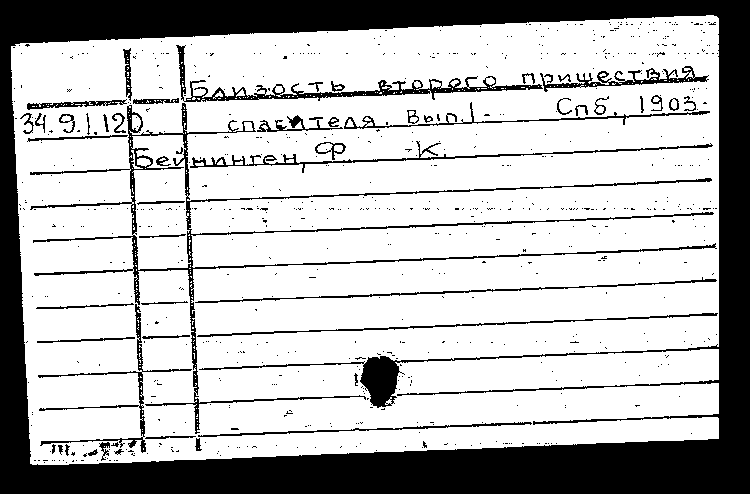 Близость второго пришествия
34.9.1.120. спасителя. Вып.1. Спб., 1903.
Бейнинген, Ф -К.